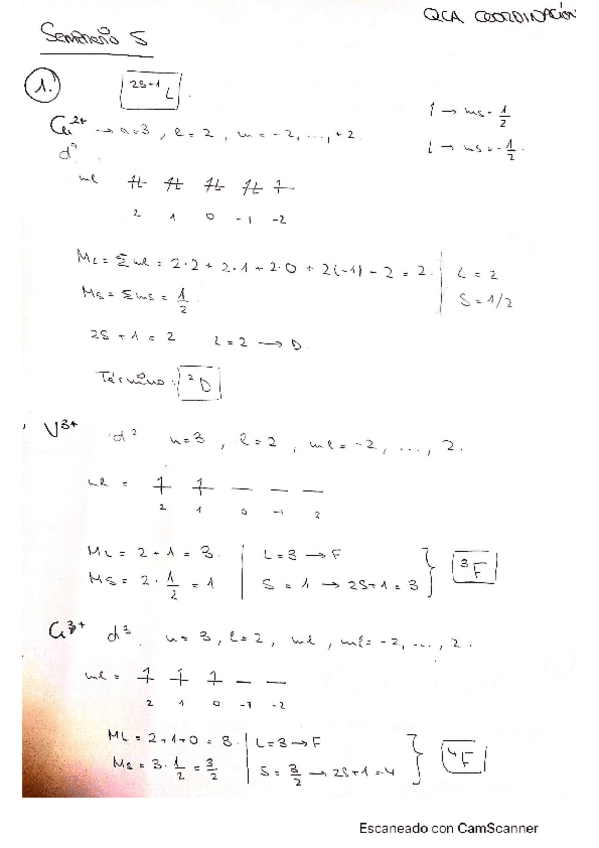 QCA COORDINACIÓN
SEMINARIO 5
1.
2S+1 L
↑ → ms = 1/2
↓ → ms = -1/2
Cu2+ → n=3, l=2, m=-2, ..., +2.
d9
ml
2 1 0 -1 -2
ML = Σml = 2·2 + 2·1 + 2·0 + 2(-1) - 2 = 2. | L = 2
MS = Σms = 1/2. | S = 1/2
2S + 1 = 2 L = 2 → D.
Término: 2D
V3+ d2 n=3, l=2, ml=-2, ..., 2.
ml =
2 1 0 -1 2
ML = 2 + 1 = 3. | L=3 → F
MS = 2 · 1/2 = 1 | S = 1 → 2S+1 = 3 } 3F
Cr3+ d3. n = 3, l=2, ml, ml=-2, ..., 2.
ml =
2 1 0 -1 -2
ML = 2+1+0 = 3. | L=3 → F
MS = 3·1/2 = 3/2 | S = 3/2 → 2S+1 = 4 } 4F
Escaneado con CamScanner